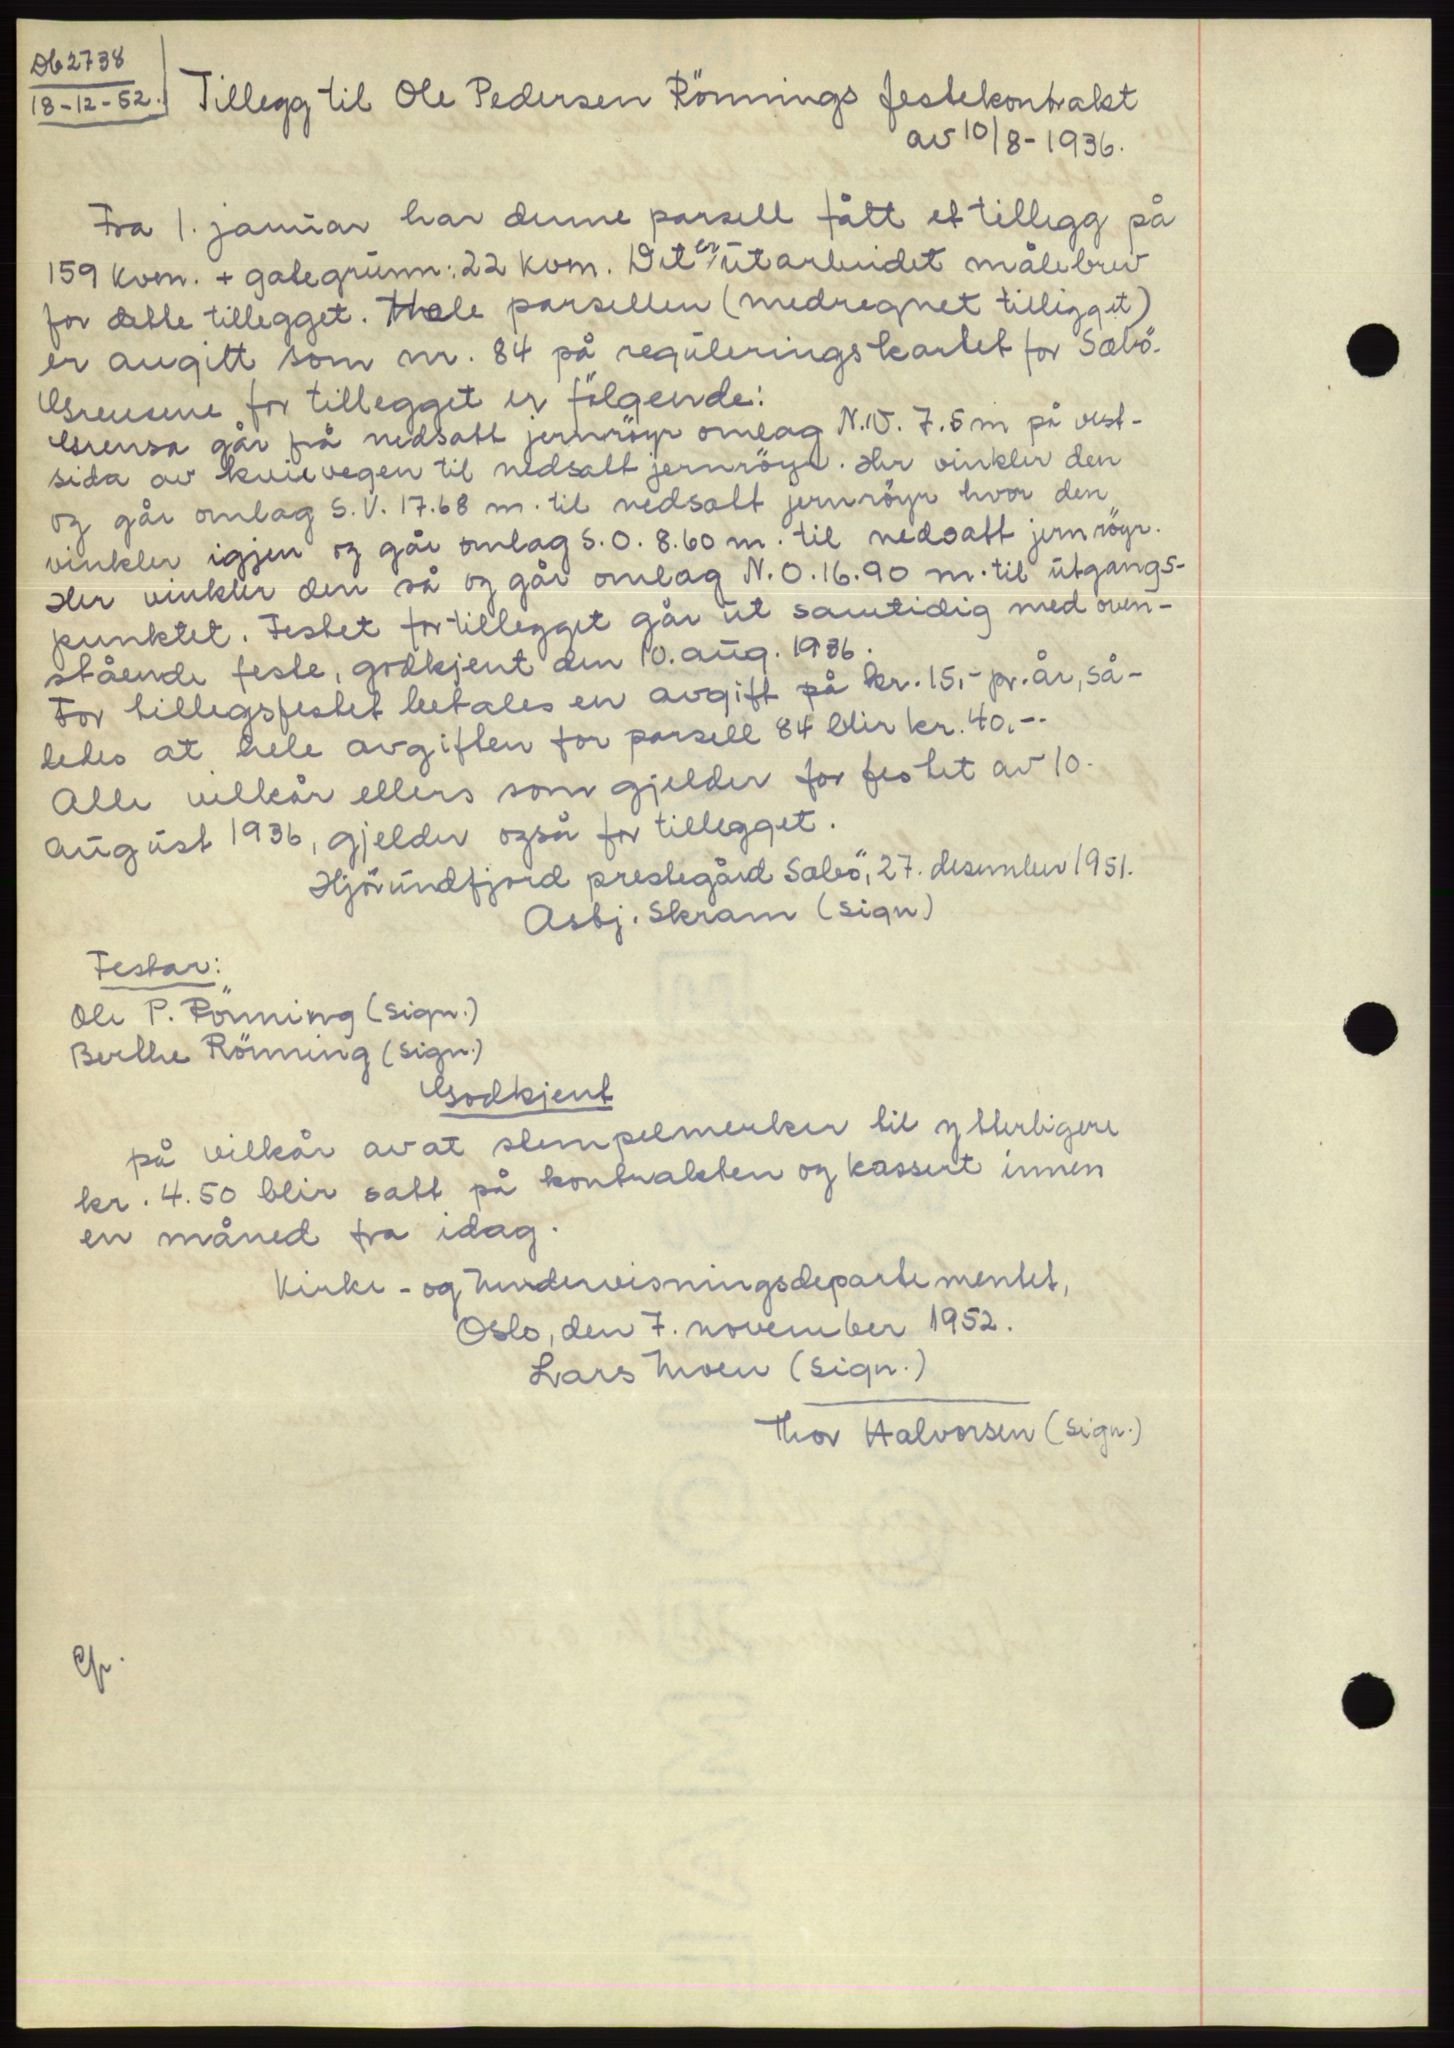 Db 2738
18-12-52.
Tillegg til Ole Pedersen Rönnings festekontrakt
av 10/8-1936.
Fra 1. januar har denne parsell fått et tillegg på
159 kvm. + gategrunn: 22 kvm. Det er utarbeidet målebrev
for dette tillegget. Hele parsellen (medregnet tilligget)
er avgitt som nr. 84 på reguleringskartet for Sæbö.
Grensene for tillegget er fölgende:
Grensa går frå nedsatt jernröyr omlag N.V. 7.5 m på vest-
sida av kvievegen til nedsatt jernröyr. Her vinkler den
og går omlag S.V. 17.68 m. til nedsatt jernröyr hvor den
vinkler igjen og går omlag S.O. 8.60 m. til nedsatt jernröyr.
Her vinkler den så og går omlag N.O. 16.90 m. til utgangs-
punktet. Festet for tillegget går ut samtidig med oven-
stående feste, godkjent den 10. aug. 1936.
For tillegsfestet betales en avgift på kr. 15,- pr. år, så-
ledes at hele avgiften for parsell 84 blir kr. 40,--
Alle vilkår ellers som gjelder for festet av 10.
august 1936, gjelder også for tillegget.
Hjörundfjord prestegård Sæbö, 27. desember 1951.
Asbj. Skram (sign)
Festar:
Ole P. Rönning (sign.)
Berthe Rönning (sign.)
Godkjent
på vilkår av at stempelmerker til ytterligere
kr. 4.50 blir satt på kontrakten og kassert innen
en måned fra idag.
Kirke- og Undervisningsdepartementet,
Oslo, den 7. november 1952.
Lars Moen (sign.)
Thor Halvorsen (sign.)